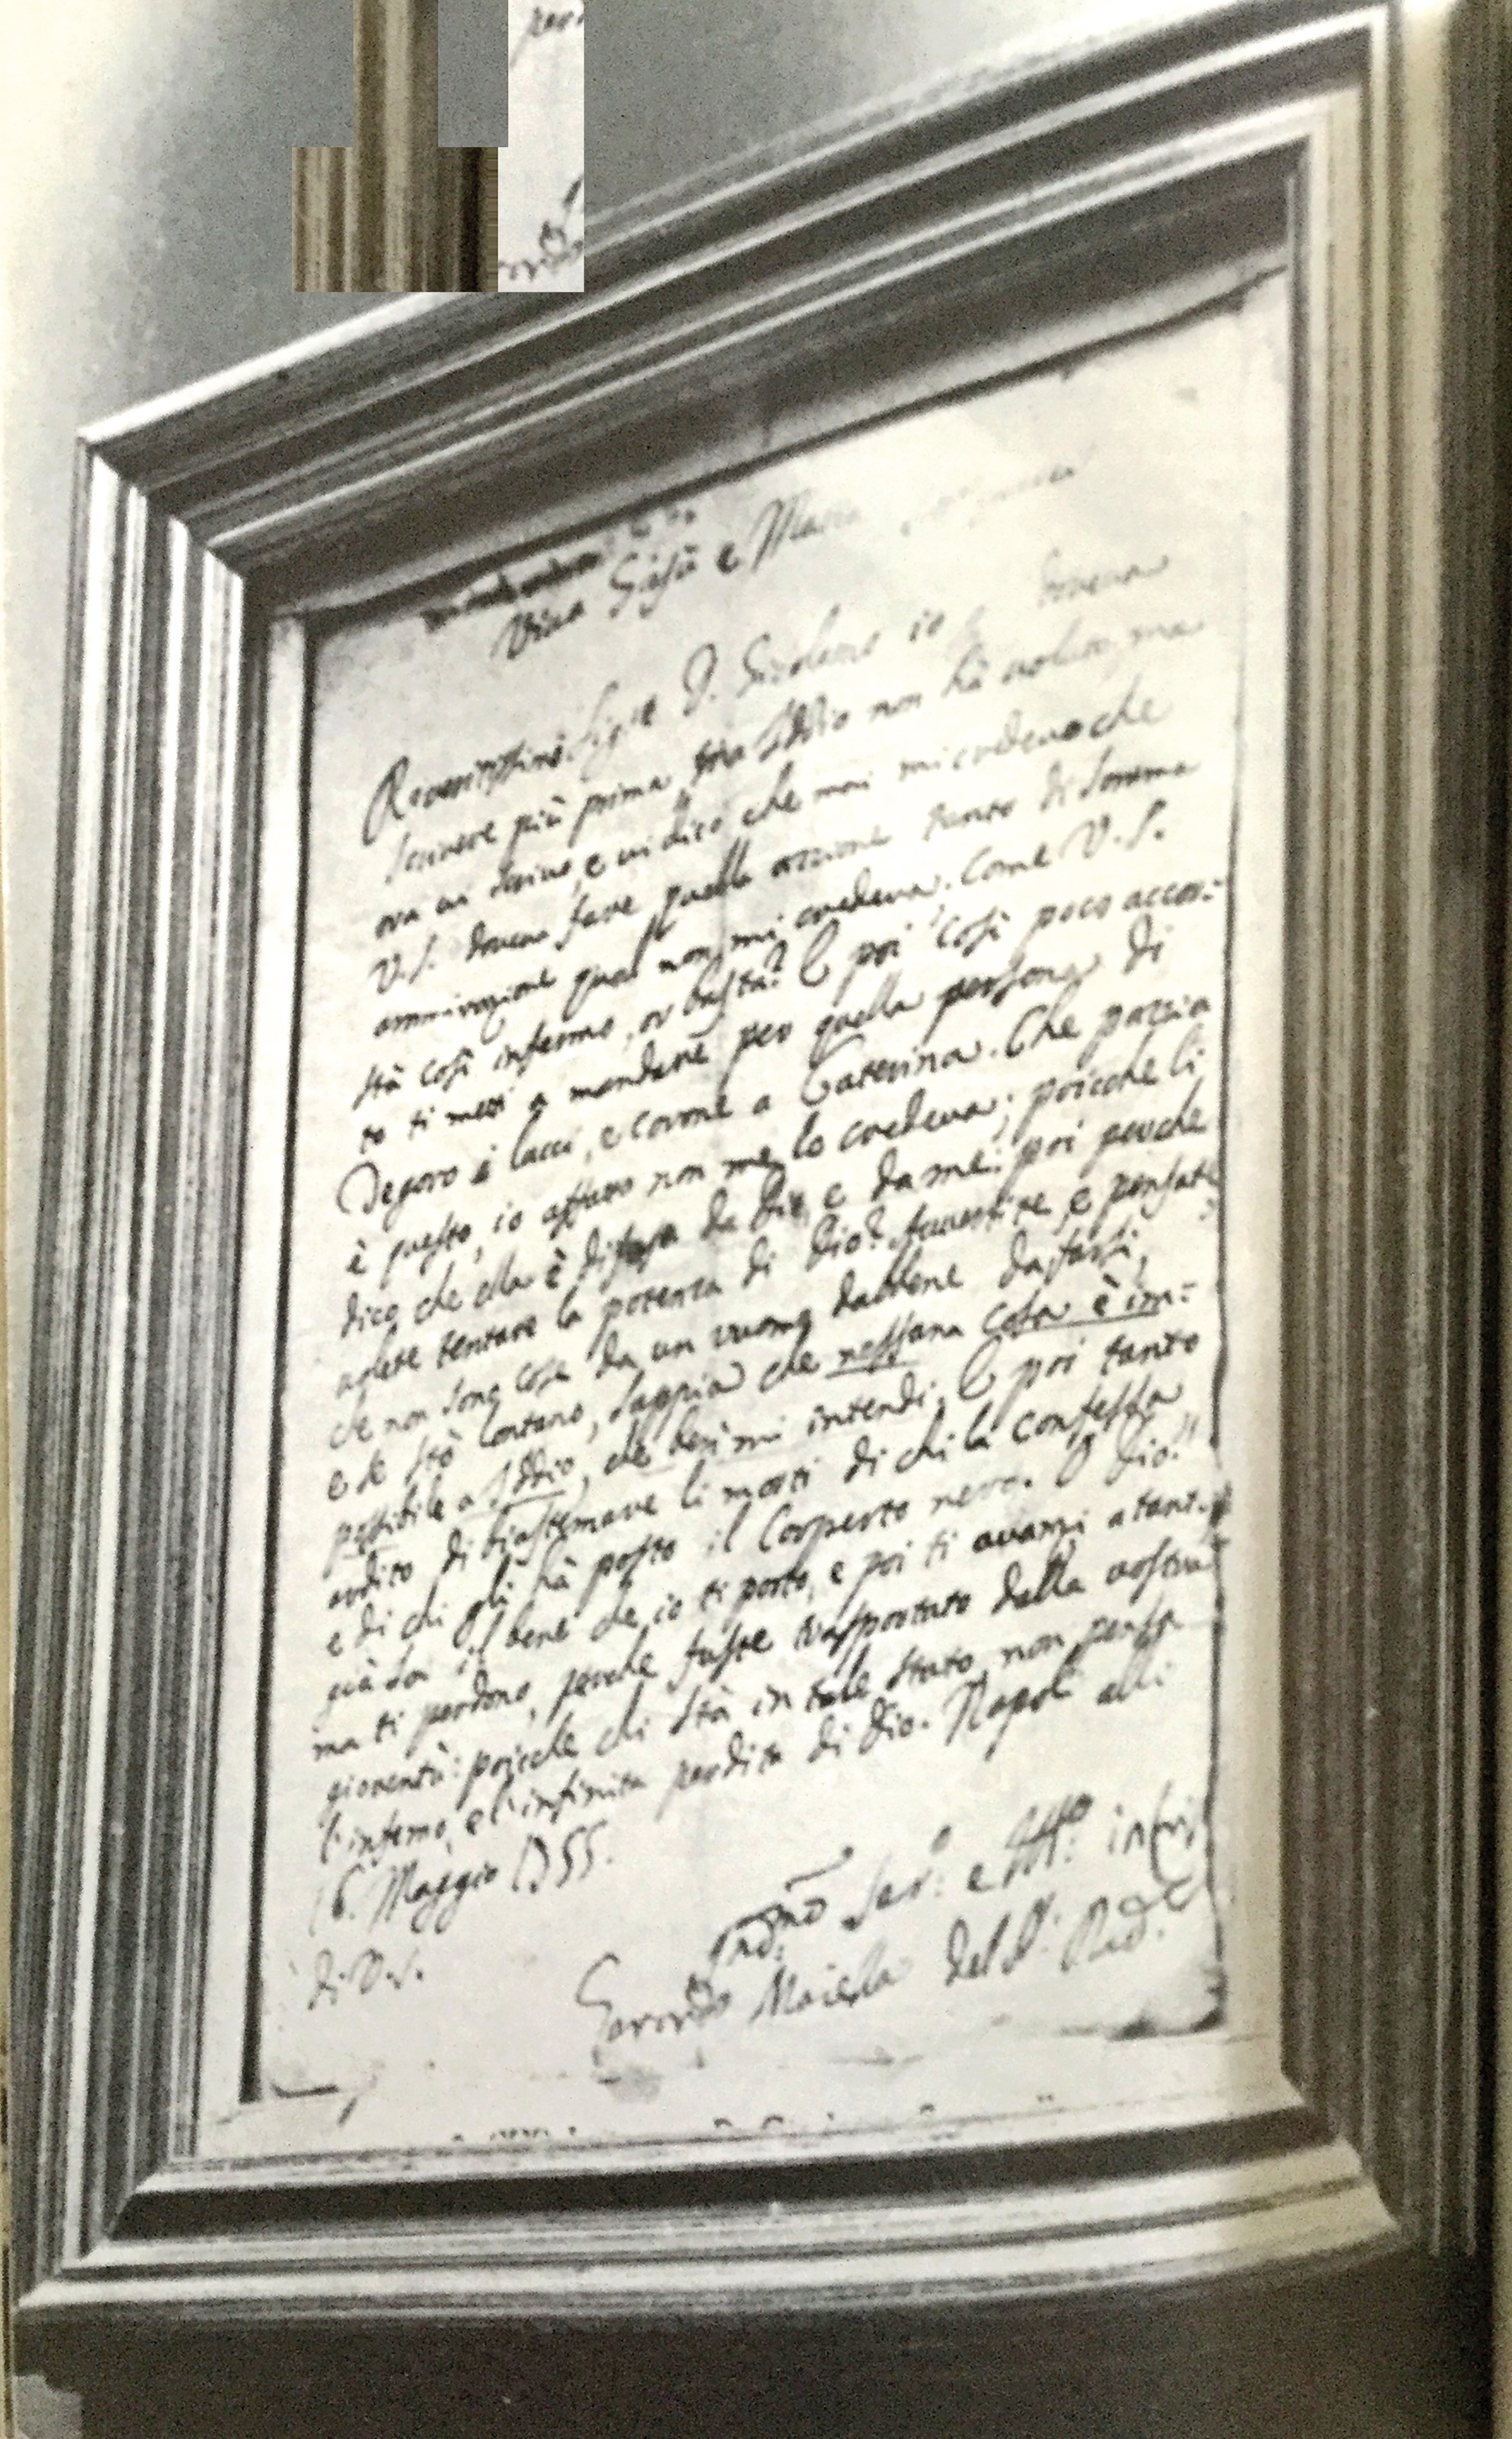 Viva Giesù e Maria
Reveritissimo Sig.re D. Girolamo io doveva
scrivere più prima, ma Iddio non hà voluto, ma
ora vi scrivo, e vi dico che mai mi credevo che
V.S. doveva fare quella azzione tanto di somma
ammirazione quale non mi credeva. Come V.S.
stà così infermo, or basta? E poi così poco accor:
to ti metti a mandare per quella persona di
Deporo i lacci, e corone a Caterina. Che pazzia
è questo, io affatto non me lo credeva; poicche li
dico, che ella è difesa da Dio, e da me: poi perche
volete tentare la potenza di Dio? Avvertite, e pensate
che non sono cose da un vuomo dabbene da farsi,
e se stò lontano, sappia che nessuna cosa è im:
possibile a Iddio, che ben mi intendi. E poi tanto
ardito di biastemare li morti di chi la confessa
e di chi gli hà posto il Corperto nero. O Dio!
già sai il bene che io ti porto, e poi ti avanzi a tant.
ma ti perdono, perche fuste trasportato dalla vostra
gioventù: poicche chi stà in tale stato non pensa
l'inferno, e l'infinita perdita di Dio. Napoli alli
16. Maggio 1755.
di V.S.
Ind:mo Ser:o e
Gerardo Maiella del SS. Red.